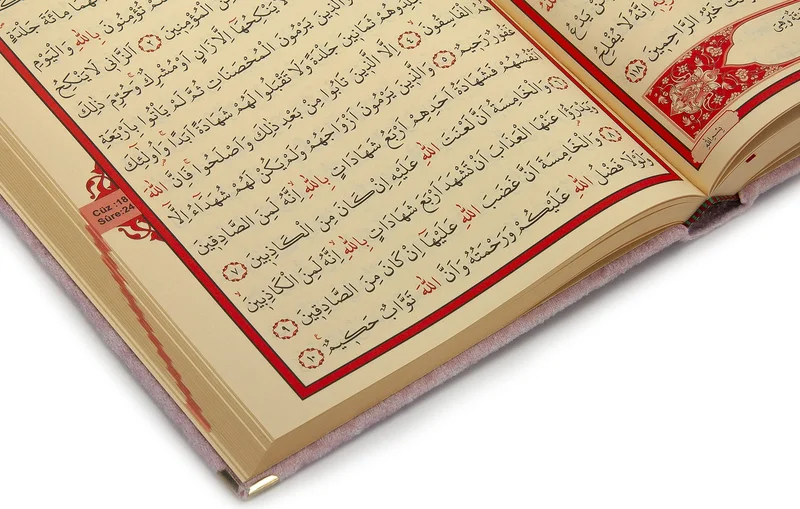 مِنْهُمَا مِائَةَ جَلْدَةٍ
تُؤْمِنُونَ بِاللهِ وَالْيَوْمِ
مِنَ الْمُؤْمِنِينَ ﴿٢﴾ اَلزَّانِي لَا يَنْكِحُ
يَنْكِحُهَا اِلَّا زَانٍ اَوْ مُشْرِكٌ وَحُرِّمَ ذٰلِكَ
وَالَّذِينَ يَرْمُونَ الْمُحْصَنَاتِ ثُمَّ لَمْ يَأْتُوا بِاَرْبَعَةِ
فَاجْلِدُوهُمْ ثَمَانِينَ جَلْدَةً وَلَا تَقْبَلُوا لَهُمْ شَهَادَةً اَبَدًا وَاُولٰئِكَ
هُمُ الْفَاسِقُونَ ﴿٤﴾ اِلَّا الَّذِينَ تَابُوا مِنْ بَعْدِ ذٰلِكَ وَاَصْلَحُوا فَاِنَّ اللهَ
غَفُورٌ رَحِيمٌ ﴿٥﴾ وَالَّذِينَ يَرْمُونَ اَزْوَاجَهُمْ وَلَمْ يَكُنْ لَهُمْ شُهَدَاءُ اِلَّا
اَنْفُسُهُمْ فَشَهَادَةُ اَحَدِهِمْ اَرْبَعُ شَهَادَاتٍ بِاللهِ اِنَّهُ لَمِنَ الصَّادِقِينَ
﴿٦﴾ وَالْخَامِسَةُ اَنَّ لَعْنَتَ اللهِ عَلَيْهِ اِنْ كَانَ مِنَ الْكَاذِبِينَ ﴿٧﴾
وَيَدْرَؤُا عَنْهَا الْعَذَابَ اَنْ تَشْهَدَ اَرْبَعَ شَهَادَاتٍ بِاللهِ اِنَّهُ لَمِنَ الْكَاذِبِينَ
﴿٨﴾ وَالْخَامِسَةَ اَنَّ غَضَبَ اللهِ عَلَيْهَا اِنْ كَانَ مِنَ الصَّادِقِينَ ﴿٩﴾
وَلَوْلَا فَضْلُ اللهِ عَلَيْكُمْ وَرَحْمَتُهُ وَاَنَّ اللهَ تَوَّابٌ حَكِيمٌ ﴿١٠﴾
Cüz :18
Sûre:24
اِنَّهُ لَا يُفْلِحُ
خَيْرُ الرَّاحِمِينَ ﴿١١٨﴾